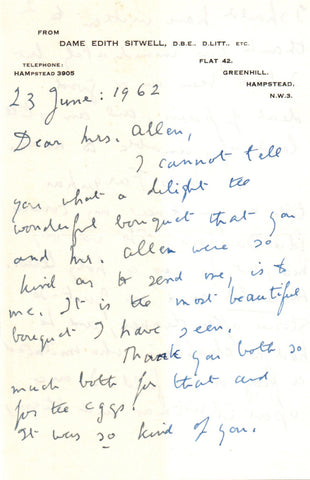 FROM
DAME EDITH SITWELL, D.B.E., D.LITT., ETC.
TELEPHONE:
HAMPSTEAD 3905
FLAT 42.
GREENHILL.
HAMPSTEAD,
N.W.3.
23 June: 1962
Dear Mrs. Allen,
I cannot tell
you what a delight the
wonderful bouquet that you
and Mr. Allen were so
kind as to send me, is to
me. It is the most beautiful
bouquet I have seen.
Thank you both so
much both for that and
for the eggs.
It was so kind of you.